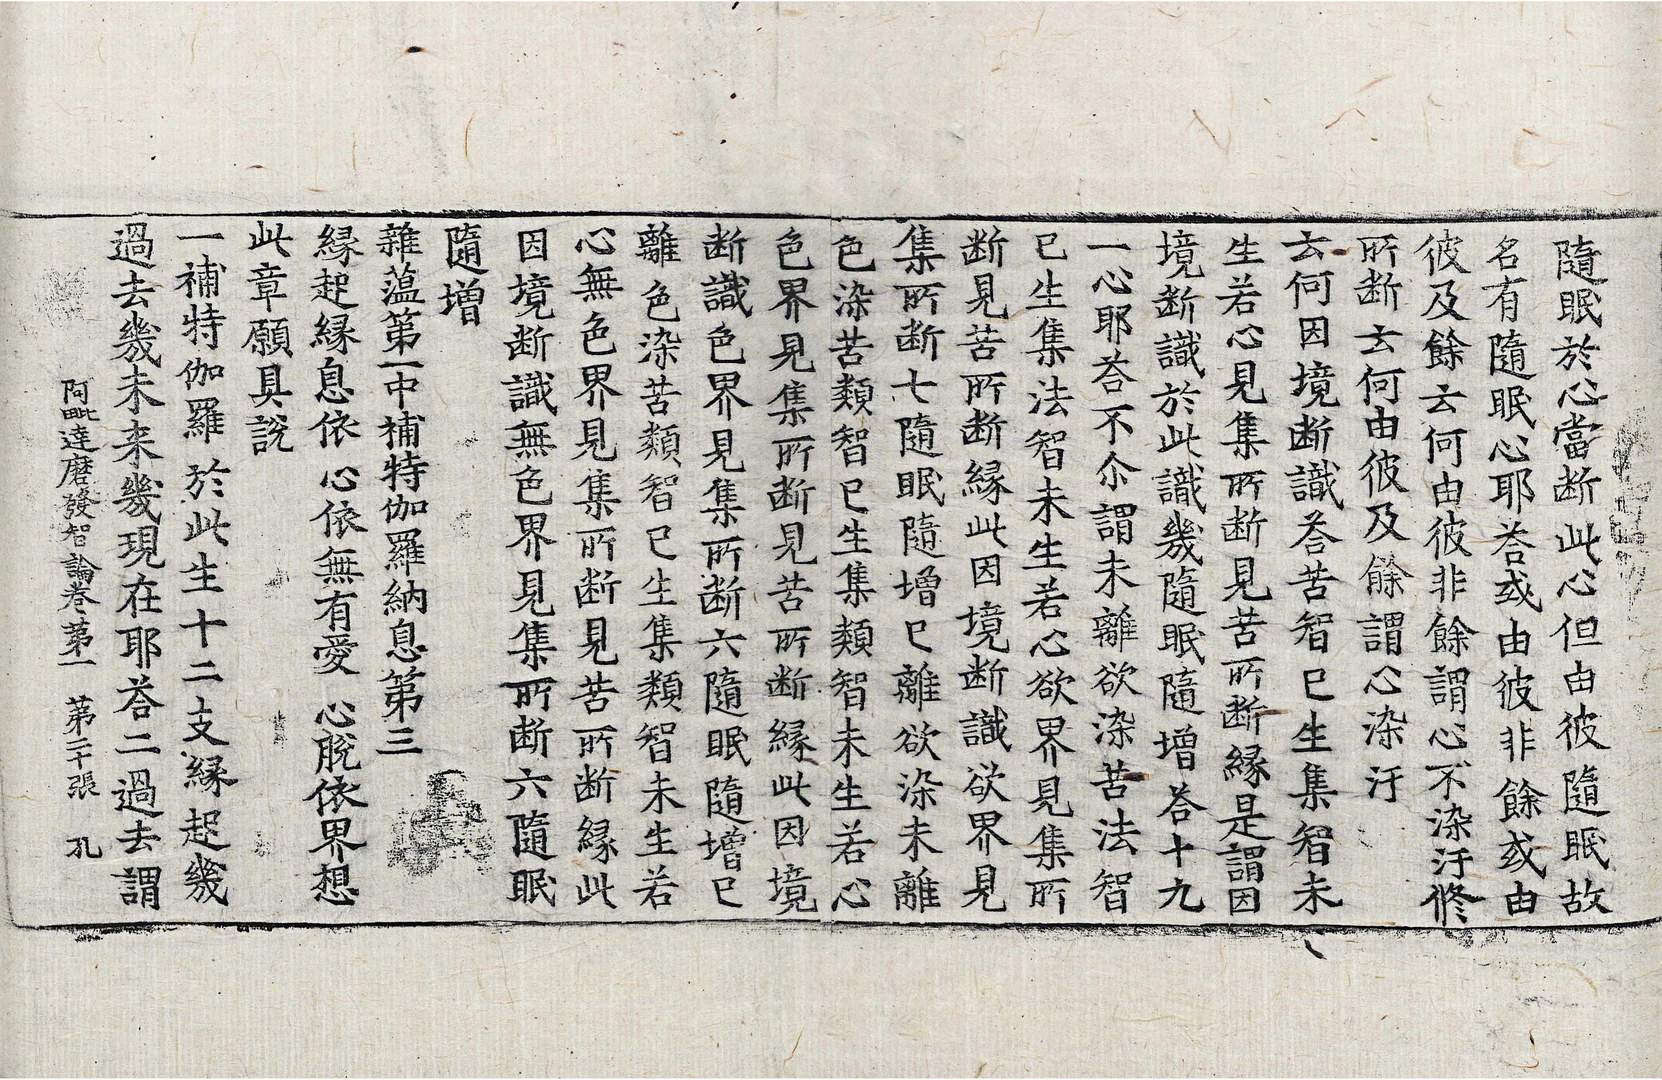 隨眠於心當断此心但由彼隨眠故
名有隨眠心耶荅或由彼非餘或由
彼及餘云何由彼非餘謂心不染汙修
所断云何由彼及餘謂心染汙
云何因境断識荅苦智已生集智未
生若心見集所断見苦所断縁是謂因
境断識於此識幾隨眠隨增荅十九
一心耶荅不尒謂未離欲染苦法智
已生集法智未生若心欲界見集所
断見苦所断縁此因境断識欲界見
集所断七隨眠隨增已離欲染未離
色染苦類智已生集類智未生若心
色界見集所断見苦所断縁此因境
断識色界見集所断六隨眠隨增已
離色染苦類智已生集類智未生若
心無色界見集所断見苦所断縁此
因境断識無色界見集所断六隨眠
隨增
雜藴第一中補特伽羅納息第三
縁起縁息依 心依無有愛 心脫依界想
此章願具說
一補特伽羅於此生十二支縁起幾
過去幾未来幾現在耶荅二過去謂
阿毗達磨發智論卷第一 第二十張 孔